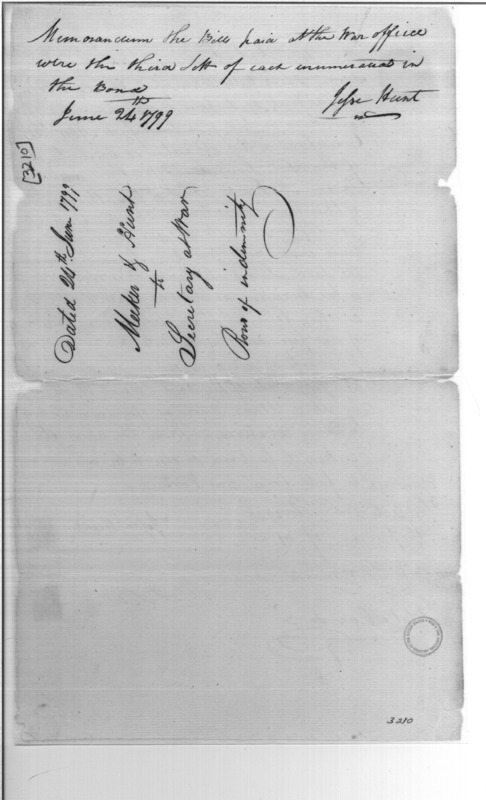 Memorandum the Bills paid at the War office
were the third Sett of each enumerated in
the Bond
June 24th 1799
Jesse Hunt
[3210]
Dated 24th June 1799
Meeker & Hunt
to
Secretary at War
Bond of indemnity
3210